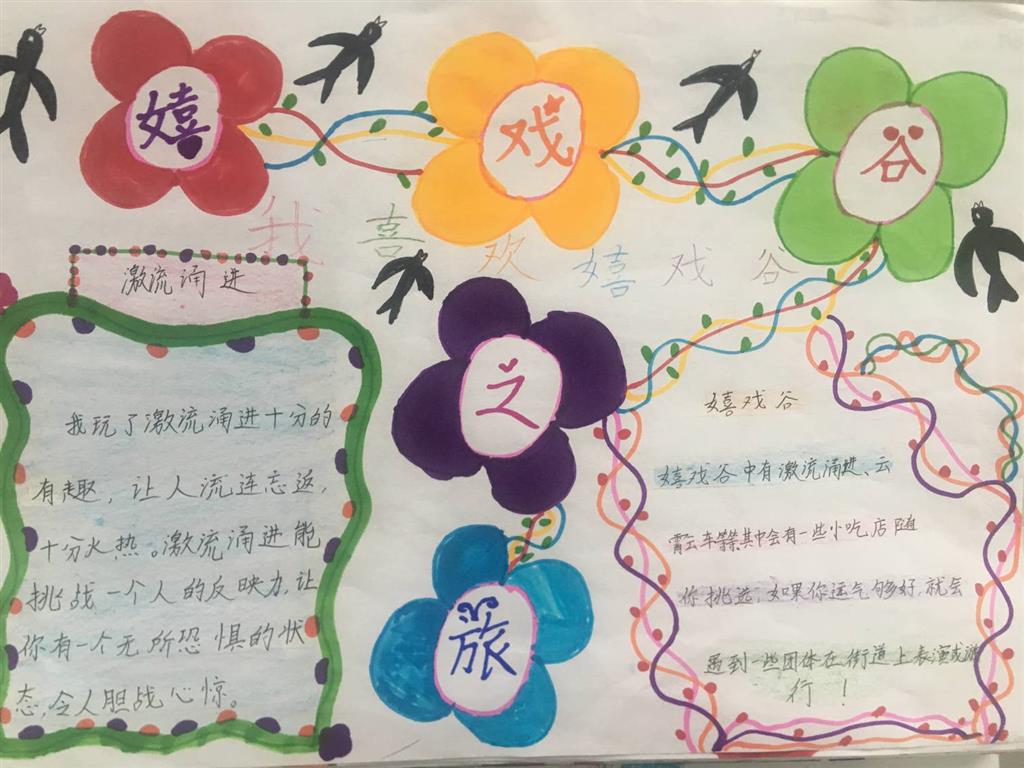 嬉戏谷之旅
我喜欢嬉戏谷
激流涌进
我玩了激流涌进十分的
有趣，让人流连忘返，
十分火热。激流涌进能
挑战一个人的反映力，让
你有一个无所恐惧的状
态，令人胆战心惊。
嬉戏谷
嬉戏谷中有激流涌进、云
霄云车等其中会有一些小吃店随
你挑选；如果你运气够好，就会
遇到一些团体在街道上表演或游
行！